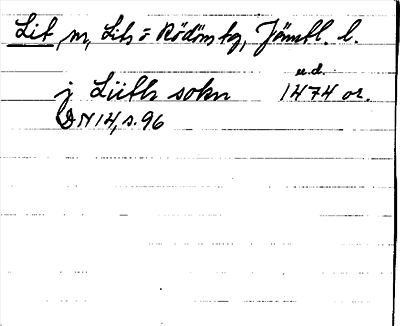 Lit, m, Lits o Rödöns tg, Jämtl. l.
u.d.
j Liith sokn 1474 or.
DN 14, s. 96